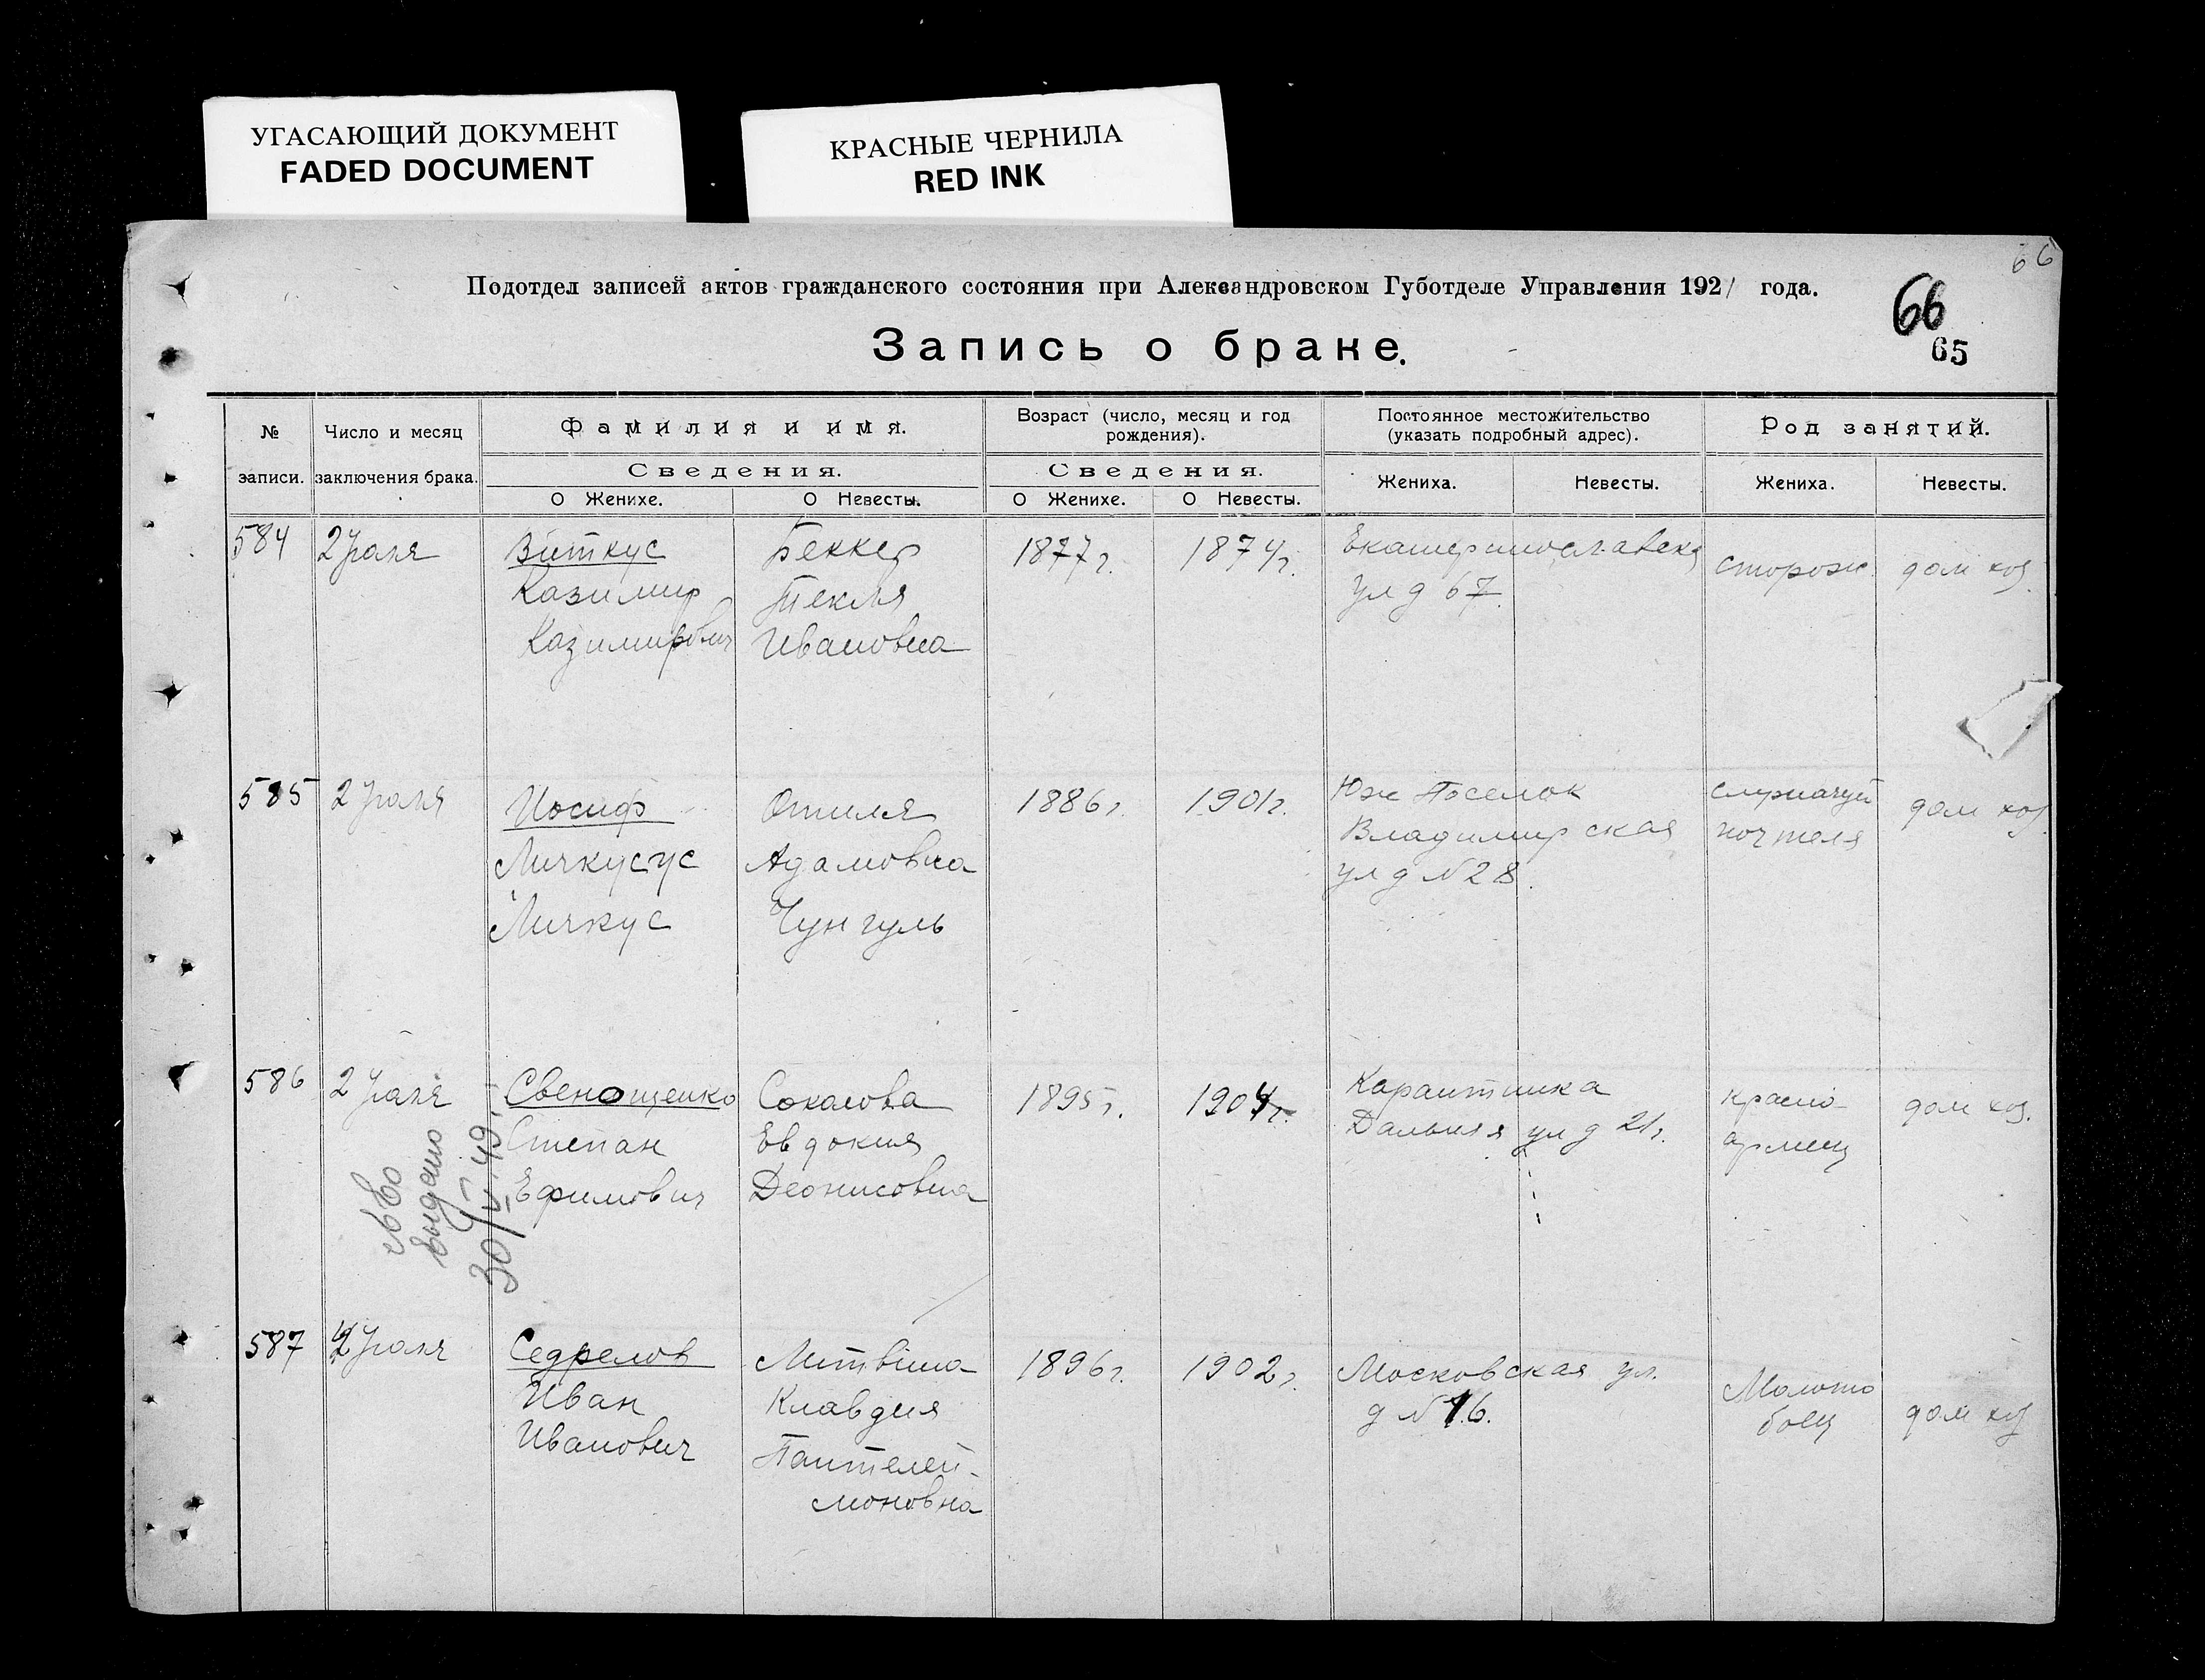 УГАСАЮЩИЙ ДОКУМЕНТ
FADED DOCUMENT
КРАСНЫЕ ЧЕРНИЛА
RED INK
66
Подотдел записей актов гражданского состояния при Александровском Губотделе Управления 1921 года.
66
Запись о браке.
65
№ записи.
Число и месяц заключения брака.
Фамилия и имя.
Возраст (число, месяц и год рождения).
Постоянное местожительство (указать подробный адрес).
Род занятий.
Сведения.
Сведения.
О Женихе.
О Невесты.
О Женихе.
О Невесты.
Жениха.
Невесты.
Жениха.
Невесты.
584
2 Июля
Виткус
Казимир
Казимирович
Беккер
Текля
Ивановна
1877 г.
1874 г.
Екатеринославска
ул д 67.
сторож
дом хоз.
585
2 Июля
Иосиф
Личкусус
Личкус
Отиля
Адамовна
Чунгуль
1886 г.
1901 г.
Юж Поселок
Владимирская
ул д № 28.
служащий
почтеля
дом хоз.
586
2 Июля
Свенощенко
Степан
Ефимович
Соколова
Евдокия
Деонисовна
1895 г.
1904 г.
Карантинка
Дальняя ул д 21.
красно-
армец
дом хоз.
выдано
30/VI 49
587
2 Июля
Седрелов
Иван
Иванович
Литвина
Клавдия
Пантелей-
моновна
1896 г.
1902 г.
Московская ул.
д № 16.
Молото
боец
дом хоз